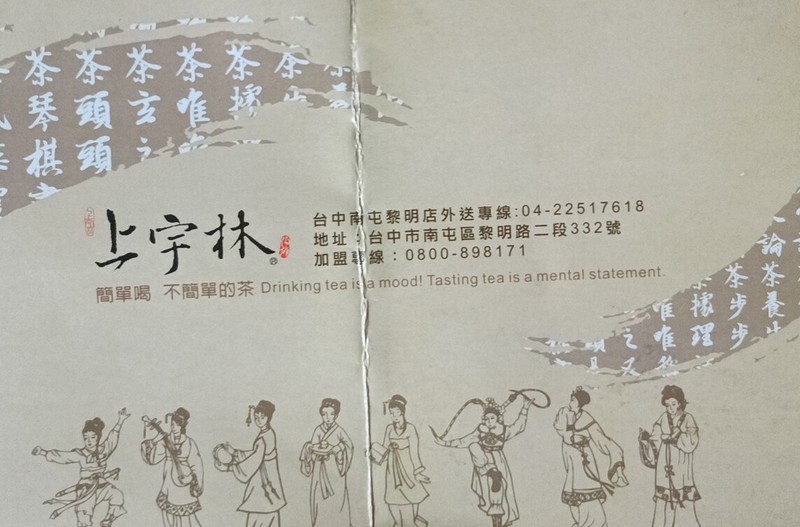 茶 茶 茶 茶 茶 茶
琴 頭 玄 唯 據
棋 頭 之
上宇林
台中南屯黎明店外送專線:04-22517618
地址:台中市南屯區黎明路二段332號
加盟專線:0800-898171
簡單喝 不簡單的茶 Drinking tea is a mood! Tasting tea is a mental statement.
論 茶 養
茶 步 步
據 理
唯 唯
之 又